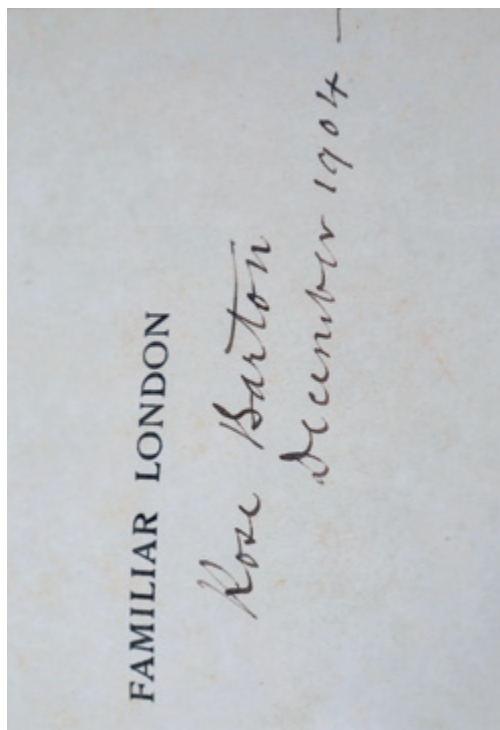 FAMILIAR LONDON
Rose Barton
December 1904 –